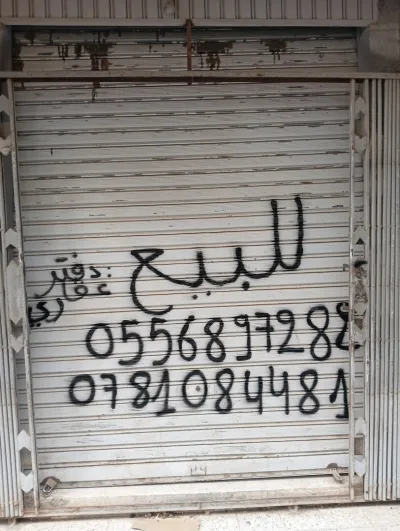 للبيع
دفتر:
عقاري
0556897288
0781084481